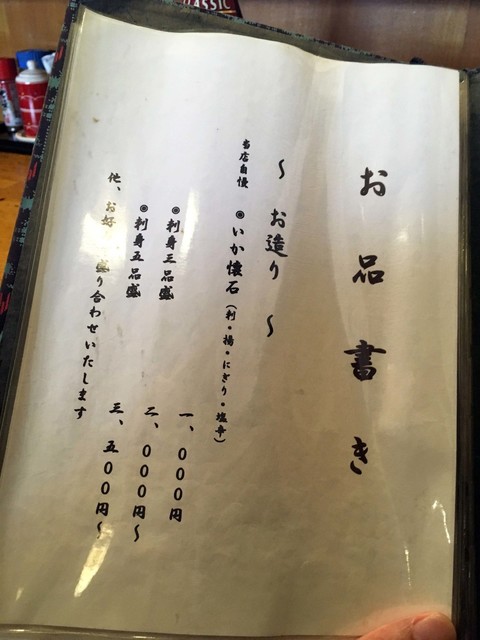 お品書き
〜 お造り 〜
当店自慢 ◉いか懐石（刺・揚・にぎり・塩辛） 一、０００円
◉刺身三品盛 二、０００円〜
◉刺身五品盛 三、五００円〜
他、お好 盛り合わせいたします